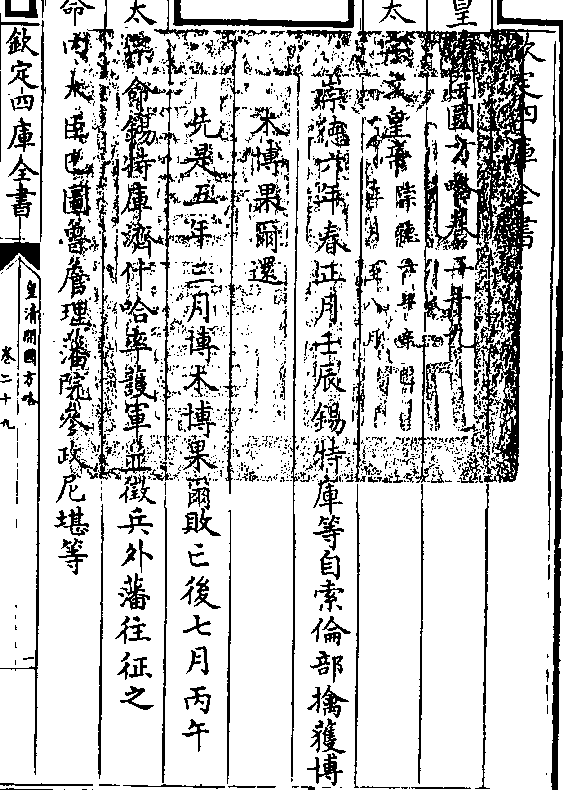 欽定四庫全書
皇清開國方略卷二十九
太宗文皇帝
崇德六年春正月壬辰錫特庫等自索倫部擒獲博
木博果爾還
先是五年三月博木博果爾敗已後七月丙午
太宗命錫特庫濟什哈率護軍並徵兵外藩往征之
命內大臣巴圖魯詹理藩院參政尼堪等
欽定四庫全書
皇清開國方略
卷二十九
一